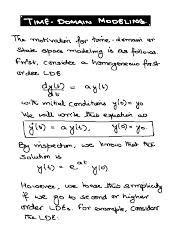 TIME-DOMAIN MODELING
The motivation for time-domain or
state space modeling is as follows.
First, consider a homogeneous first
order LDE
dy(t)/dt = a y(t)
with initial conditions y(0) = y₀
We will write this equation as
ẏ(t) = a y(t), y(0) = y₀
By inspection, we know that the
solution is
y(t) = e^{at} y(0)
However, we lose this simplicity
if we go to second or higher
order LDEs. For example, consider
the LDE: